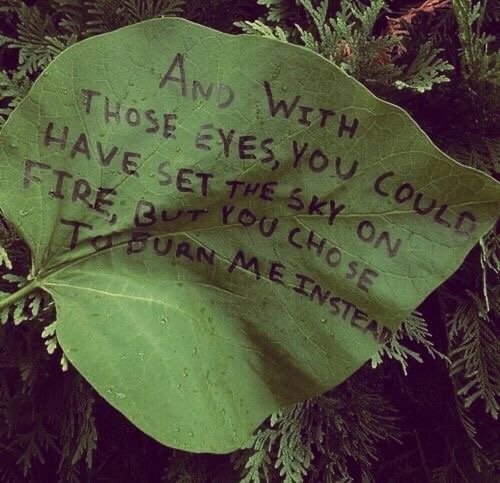 AND WITH
THOSE EYES, YOU COULD
HAVE SET THE SKY ON
FIRE, BUT YOU CHOSE
TO BURN ME INSTEAD